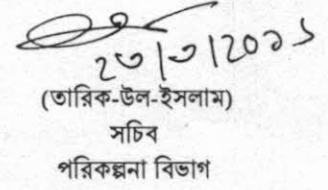 ২৩|৩|২০১১
(তারিক-উল-ইসলাম)
সচিব
পরিকল্পনা বিভাগ